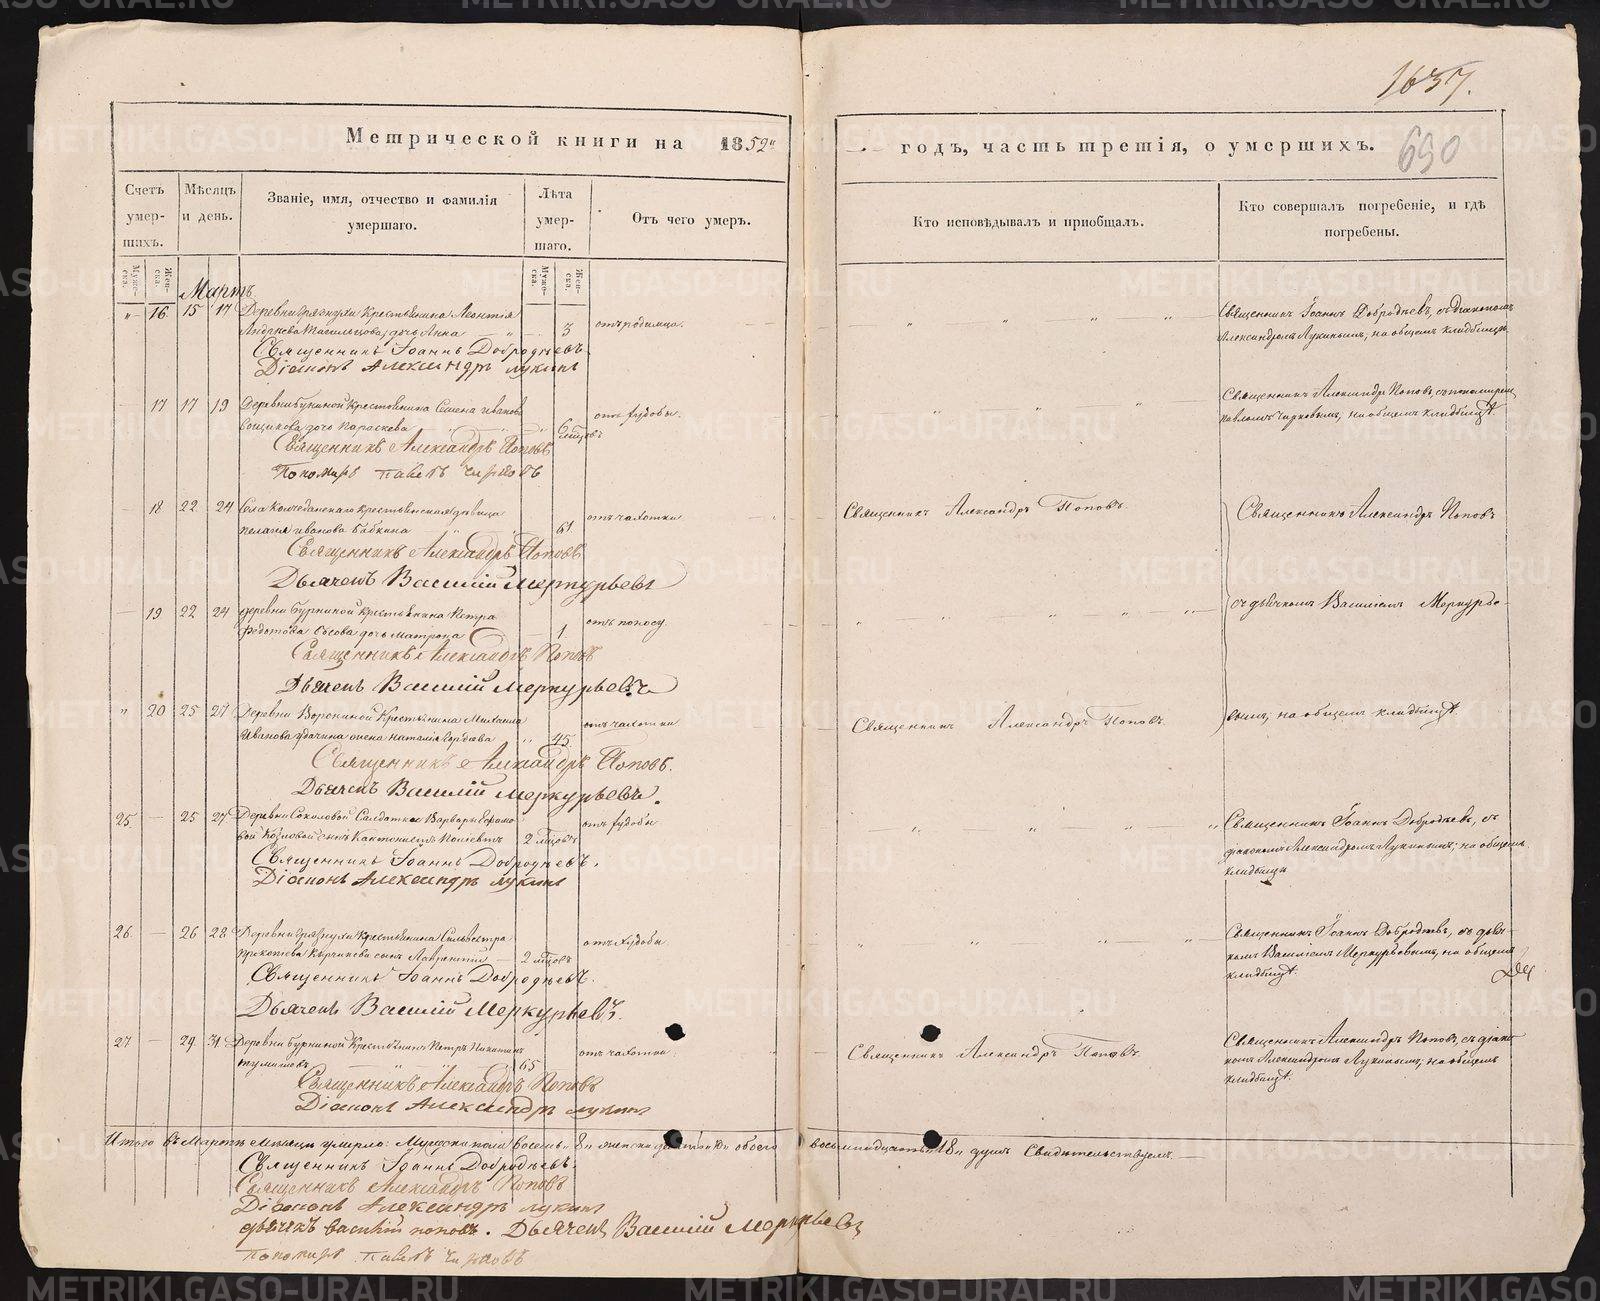 1637.
690
Метрической книги на 1852й
годъ, часть третія, о умершихъ.
Счетъ умер-шихъ.
Мѣсяцъ и день.
Званіе, имя, отчество и фамилія умершаго.
Лѣта умер-шаго.
Отъ чего умеръ.
Кто исповѣдывалъ и пріобщалъ.
Кто совершалъ погребеніе, и гдѣ погребены.
Муже-ска.
Жен-ска.
Муже-ска.
Жен-ска.
Мартъ
16 15 17 Деревни Грязнухи Крестьянина Леонтія
Андреева дочь Анна 3 отъ родимца.
Священникъ Іоаннъ Добродѣевъ, съ діакономъ
Александромъ Лукинымъ, на общемъ кладбищѣ
Священникъ Іоаннъ Добродѣевъ.
Діаконъ Александръ Лукинъ
17 17 19 Деревни Крестьянина Семена Иванова
дочь Параскева 6 отъ худобы.
Священникъ Александръ Поповъ, съ пономаремъ
Павломъ Чирковымъ, на общемъ кладбищѣ
Священникъ Александръ Поповъ
Пономарь Павелъ Чирковъ
18 22 24 Села Колчеданскаго Крестьянская дѣвица
Пелагія Иванова Бабкина 61 отъ чахотки
Священникъ Александръ Поповъ.
Священникъ Александръ Поповъ
Священникъ Александръ Поповъ
Дьячекъ Василій Меркурьевъ
19 22 24 Деревни Бурниной Крестьянина Петра
Федотова дочь Матрона 1 отъ поносу.
съ дьячкомъ Василіемъ Меркурье-
Священникъ Александръ Поповъ
Дьячекъ Василій Меркурьевъ
20 25 27 Деревни Ворониной Крестьянина Михаила
Иванова жена Наталія 45 отъ чахотки
Священникъ Александръ Поповъ.
вымъ, на общемъ кладбищѣ
Священникъ Александръ Поповъ.
Дьячекъ Василій Меркурьевъ.
25 25 27 Деревни Соколовой Солдатки Варвары
Козловой сынъ Кантонистъ 2 мѣсяцъ отъ худобы
Священникъ Іоаннъ Добродѣевъ, съ
діакономъ Александромъ Лукинымъ, на общемъ
кладбищѣ
Священникъ Іоаннъ Добродѣевъ.
Діаконъ Александръ Лукинъ
26 26 28 Деревни Грязнухи Крестьянина Сильвестра
сынъ Лаврентій 2 мѣсяцъ отъ худобы
Священникъ Іоаннъ Добродѣевъ, съ дьяч-
комъ Василіемъ Меркурьевымъ, на общемъ
кладбищѣ.
Священникъ Іоаннъ Добродѣевъ.
Дьячекъ Василій Меркурьевъ.
27 29 31 Деревни Бурниной Крестьянинъ Петръ Никитинъ
65 отъ чахотки
Священникъ Александръ Поповъ.
Священникъ Александръ Поповъ, съ діако-
номъ Александромъ Лукинымъ, на общемъ
кладбищѣ.
Священникъ Александръ Поповъ
Діаконъ Александръ Лукинъ
Итого въ Мартѣ мѣсяцѣ умерло: Мужеска пола восемь 8 женска десять 10 обоего восемнадцать 18 душъ Свидѣтельствуемъ.
Священникъ Іоаннъ Добродѣевъ.
Священникъ Александръ Поповъ
Діаконъ Александръ Лукинъ
Дьячекъ Василій Поповъ. Дьячекъ Василій Меркурьевъ
Пономарь Павелъ Чирковъ
METRIKI.GASO-URAL.RU